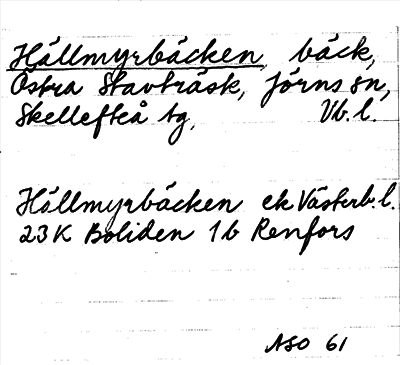 Hällmyrbäcken, bäck,
Östra Stavträsk, Jörns sn,
Skellefteå tg, Vb. l.
Hällmyrbäcken ek Västerb. l.
23K Boliden 1b Renfors
ASO 61